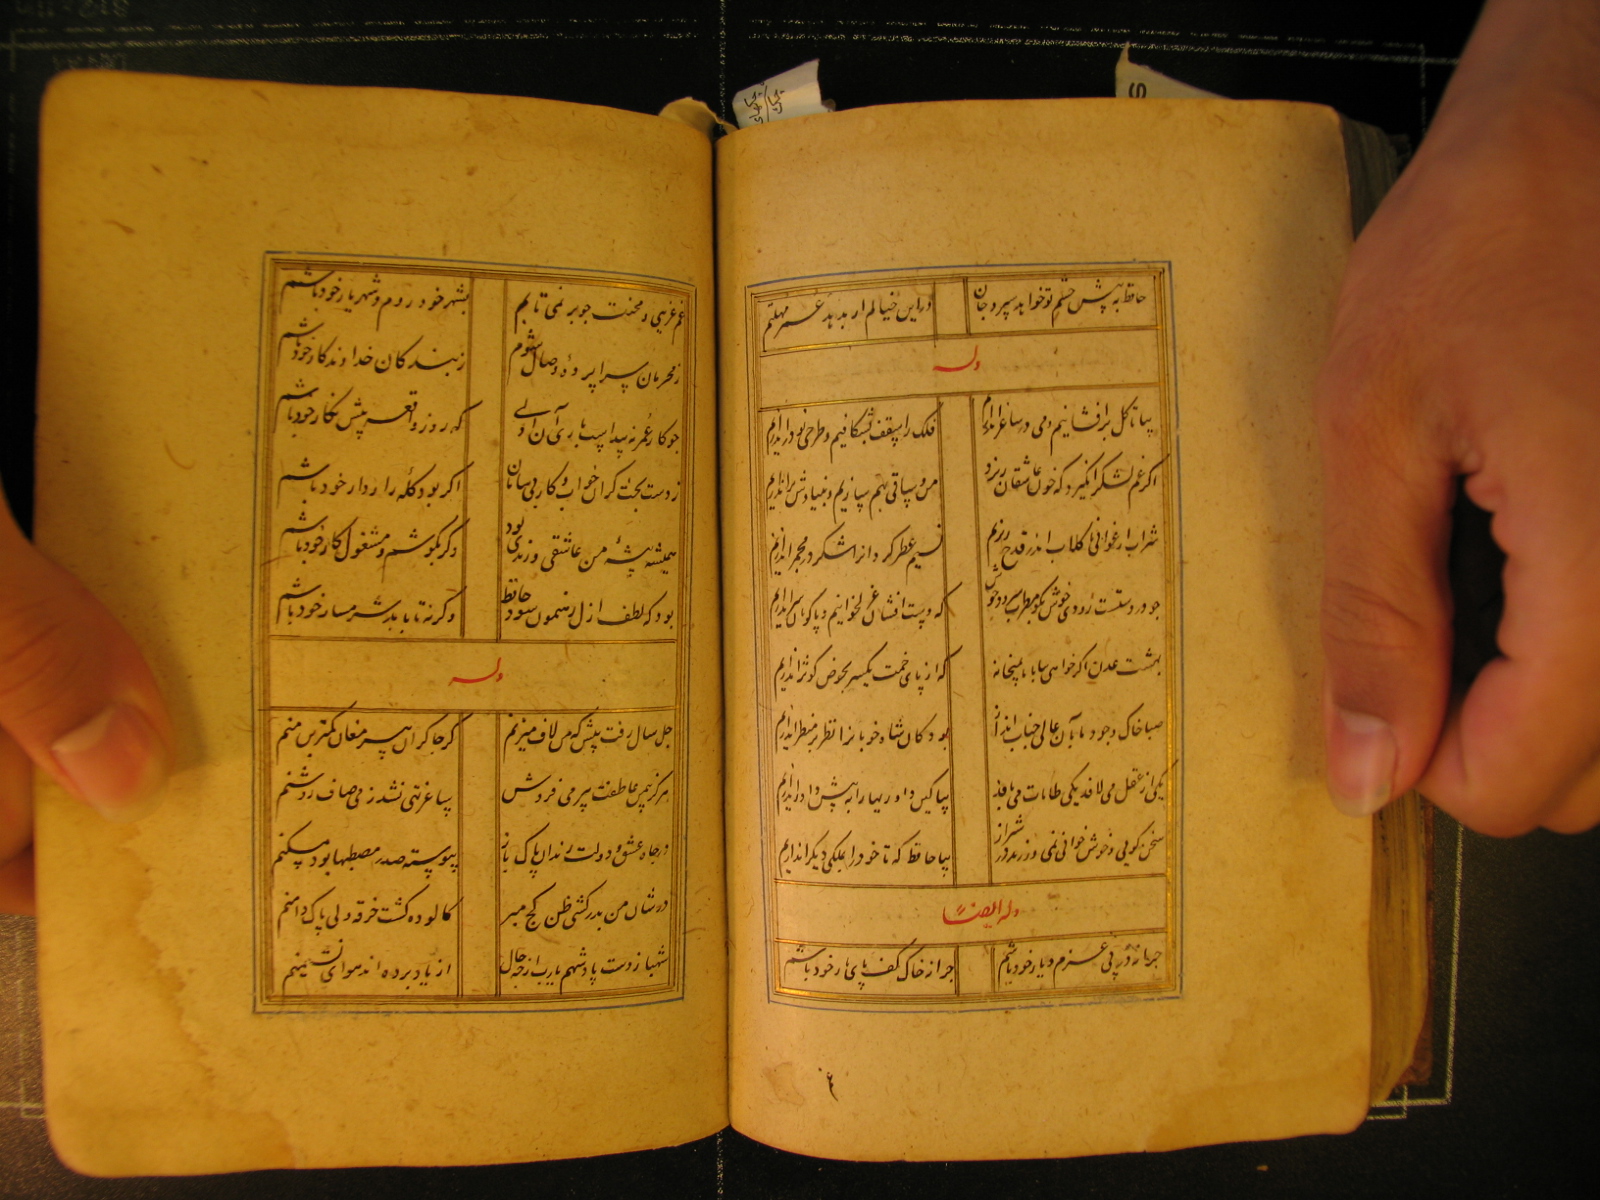 حافظ به پیش چشم تو خواهد سپرد جان در این خیالم ار بدهد عمر مهلتم
وله
بیا تا گل برافشانیم و می در ساغر اندازیم فلک را سقف بشکافیم و طرحی نو دراندازیم
اگر غم لشکر انگیزد که خون عاشقان ریزد من و ساقی بهم سازیم و بنیادش براندازیم
شراب ارغوانی را گلاب اندر قدح ریزیم نسیم عطرگردان را شکر در مجمر اندازیم
چو در دستست رودی خوش بگو مطرب سرودی خوش که دست افشان غزل خوانیم و پاکوبان سر اندازیم
بهشت عدن اگر خواهی بیا با ما بمیخانه که از پای خمت یکسر بحوض کوثر اندازیم
صبا خاک وجود ما بآن عالی جناب انداز بود کان شاه خوبانرا نظر بر منظر اندازیم
یکی از عقل می لافد یکی طامات می بافد بیا کین داوریها را به پیش داور اندازیم
سخن گویی و خوش خوانی نمی ورزند در شیراز بیا حافظ که تا خود را بملکی دیگر اندازیم
وله ایضا
چرا نه در پی عزم دیار خود باشم چرا نه خاک کف پای یار خود باشم
غم غریبی و محنت چو بر نمی تابم بشهر خود روم و شهریار خود باشم
ز محرمان سراپرده وصال شوم ز بندگان خداوندگار خود باشم
چو کار عمر نه پیداست باری آن اولی که روز واقعه پیش نگار خود باشم
ز دست بخت گران خواب و کار بی سامان اگر بود گله راز دار خود باشم
همیشه پیشه من عاشقی و رندی بود دگر بکوشم و مشغول کار خود باشم
بود که لطف ازل رهنمون شود حافظ وگرنه تا بابد شرمسار خود باشم
وله
چل سال رفت بیش که من لاف میزنم کز چاکران پیر مغان کمترین منم
هرگز بیمن عاطفت پیر می فروش ساغر تهی نشد ز می صاف روشنم
در جاه عشق و دولت رندان پاک باز پیوسته صدر مصطبها بود مسکنم
در شان من بدرد کشی ظن کج مبر کالوده گشت خرقه ولی پاک دامنم
شهباز دست پادشهم یارب از چه حال از یاد برده اند هوای نشیمنم